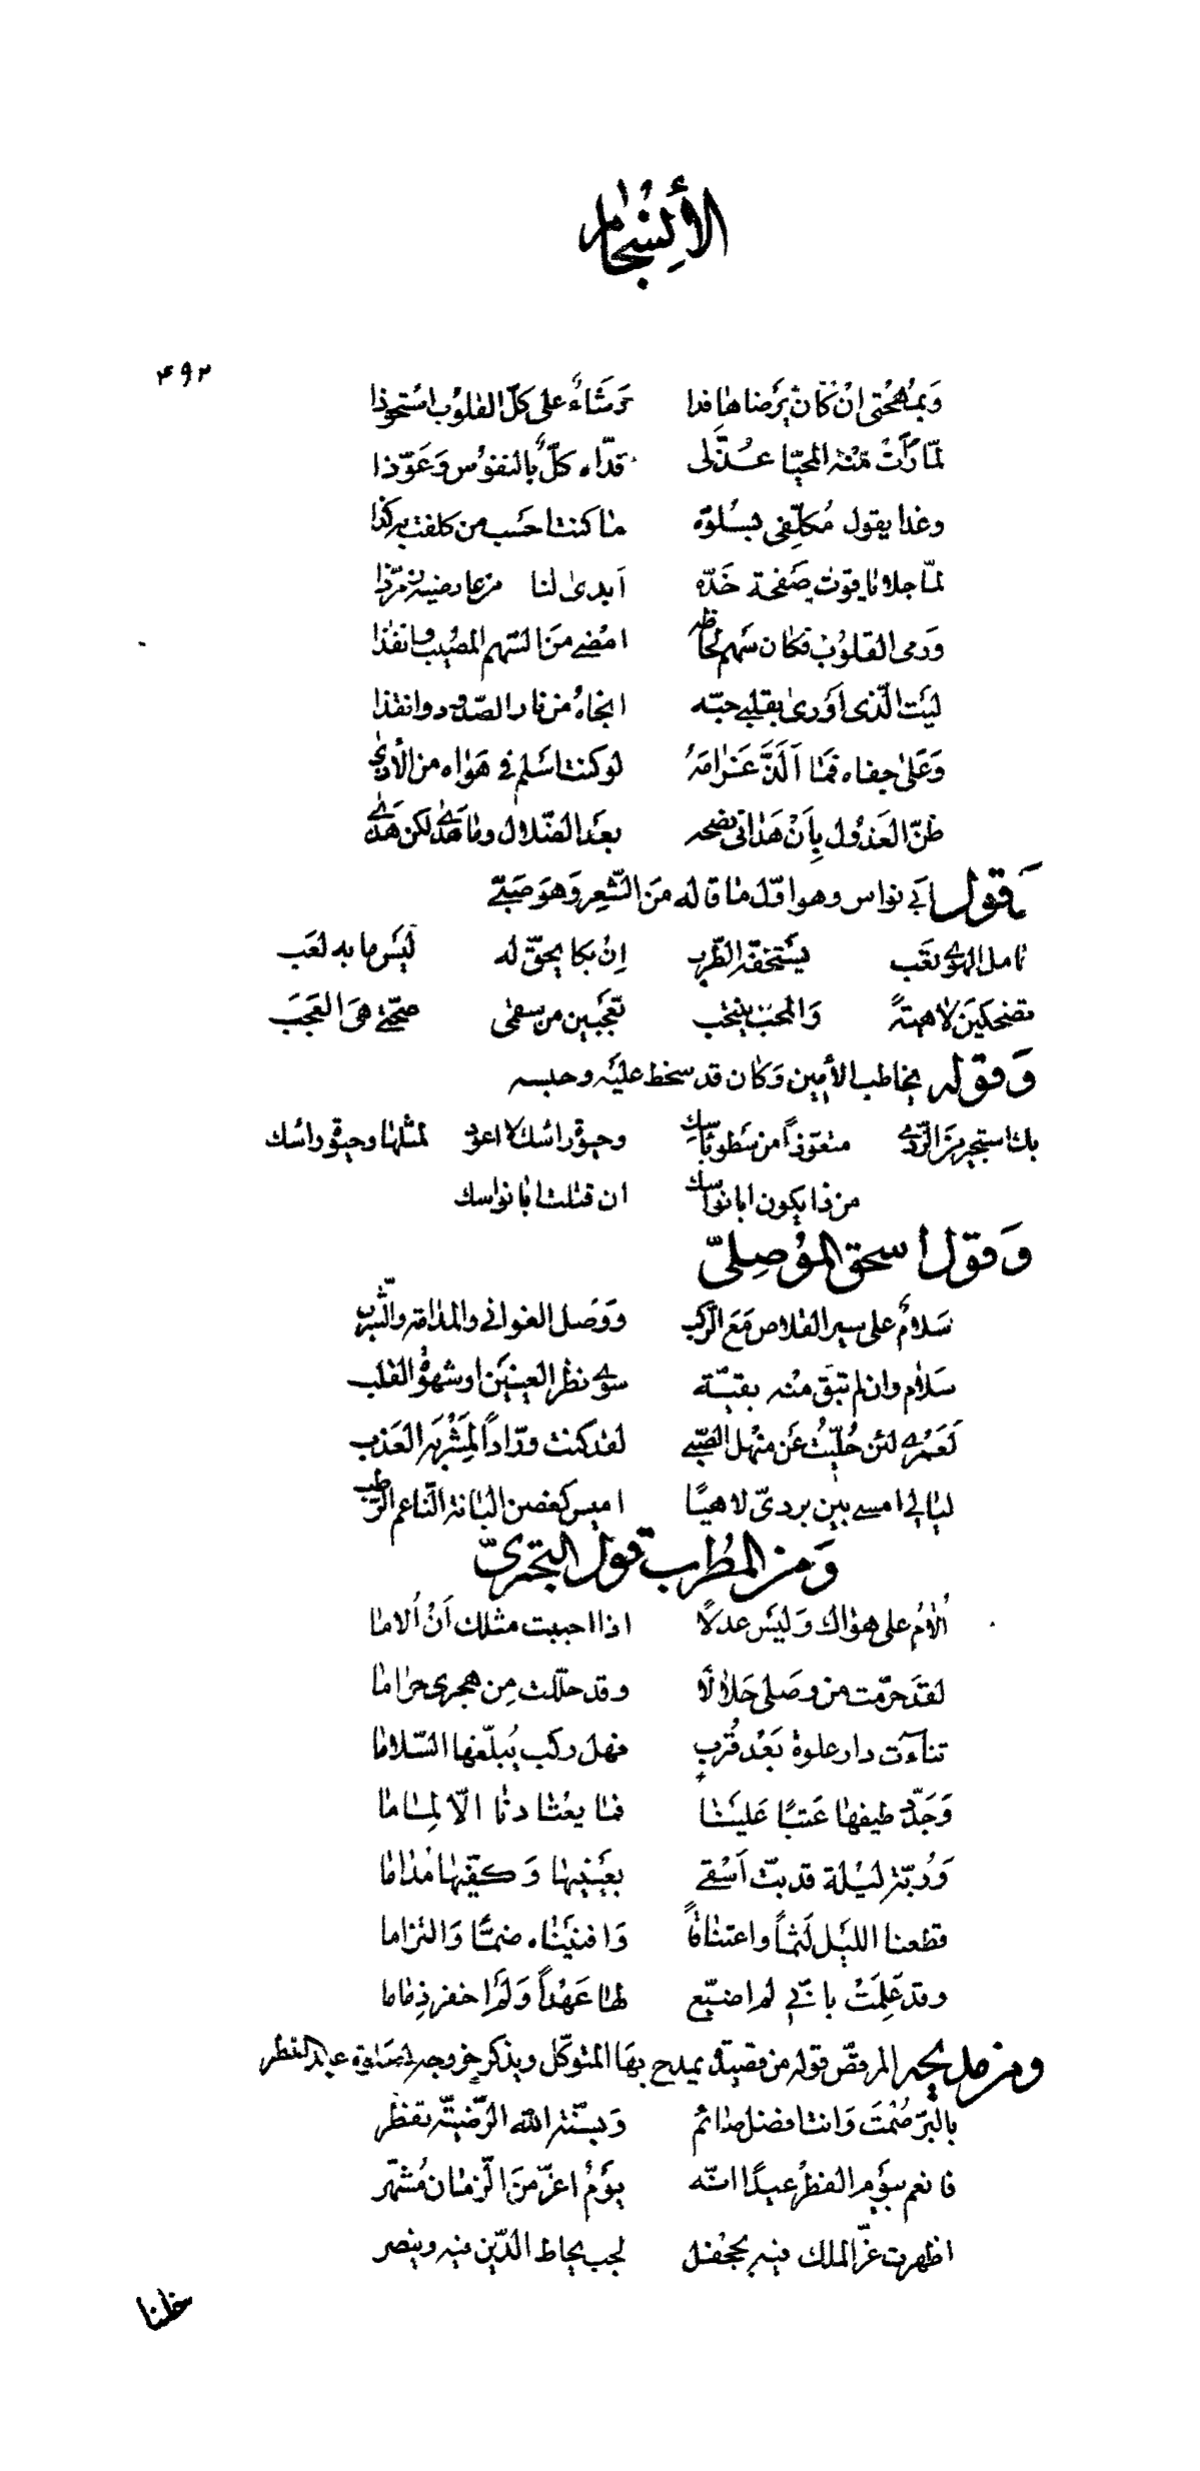 الأنسجام
۴۹۲
وَبمُهجُتى انْ كَانَ يَرضاها فدا رَشَاءٌ على كلّ القلوُب استحوذا
لمّا رَأتْ مِنْه المحيّا عُذّلى فدّاه كلٌّ بالنفوُس وَعَوّذا
وغدا يقول مُكلّفى بسُلوّه ما كنت احسَب من كلفت به كذا
لمّا جلا ياقوت صَفحة خَدّه اَبدى لنا من عارضيه زمرّذا
وَرمى القلوُب فكان سَهم لحاظه امْضى مَن السّهم المصُيب وانفذا
ليَت الّذى اَورىٰ بقلبى حبّه انجاهُ من نار الصّدود وانقذا
وَعَلى جفاه فَما اَلَذَّ غَرامَهُ لو كنت اسَلم فى هَواه من الأذى
ظنّ العَذوُل بِاَنْ هَدانى نصحه بعَد الضّلال وما هَدى لكن هَذى
وَقول ابى نواس وهو اوّل ما قاله مَن الشّعِر وَهوَ صَبىّ
حامل الهوى تعَب يسَتخفّه الطّرب اِنْ بكا يحقّ له ليَس ما به لعَب
تضحكيَن لاهيةً وَالمحبّ ينتحب تعجَبين من سقمى صحّتى هىَ العَجَب
وَقوله يخاطب الأمين وَكان قد سخط عليَه وحبسه
بك استجير مَن الرّدى متعوّذاً من سَطو باسك وحيوة راسك لا اعود لمثلها وحيوة راسك
من ذا يكون ابا نواسك ان قتلت ابا نواسك
وَقول اسحق المُوصِلىّ
سَلامٌ على سير القلاص مَعَ الرّكب ووَصل الغوانى والمدامة والشّرب
سَلام وان لم تبَق منْه بقيّة سوى نظر العينيَن او شهوة القلب
لَعَمْرى لئن حُلّيتُ عَن منْهل الصّبى لقد كنت ورّاداً لمِشَربه العَذب
ليالى امسى بين بردىّ لاهيًا اميس كغصن البانة النّاعم الرّطب
وَمن المُطرب قول البحترىّ
اُلامُ على هواك وَليسَ عدلاً اذا احببت مثلك اَنْ اُلاما
لقد حرّمت من وصَلى حَلالًا وقد حلّلت مِن هجرى حراما
تناءت دار علوة بَعْد قُربٍ فهل ركب يُبلّغها السّلاما
وَجَدّد طيفها عَتبًا عَليَنا فما يعْتادنا الّا لماما
وَرُبّت ليلة قد بتّ اَسْقى بعيَنيها وَكفّيها مُداما
قطعنا الليَل لَثماً واعتناقاً وَافنيَناه ضمّاً وَالتزاما
وقد عَلِمَتْ بانّى لم اضيّع لها عَهْداً وَلَم اخفر ذِماما
ومن مديحه المرقصّ قوله من قصيدة يمدح بها المتوكّل ويذكر خروجه لصَلوة عيد الفطر
بالبرّ صُمْتَ وَانت افضل صائم وَبسنّة الله الرّضيّة تفطر
فانعم بيوَم الفطر عيدًا انّه يوَمٌ اغرّ مَن الزّمان مُشهّر
اظهرت عزّ الملك فيه بجحفل لجب يحاط الدّين فيه وينصر
خلنا